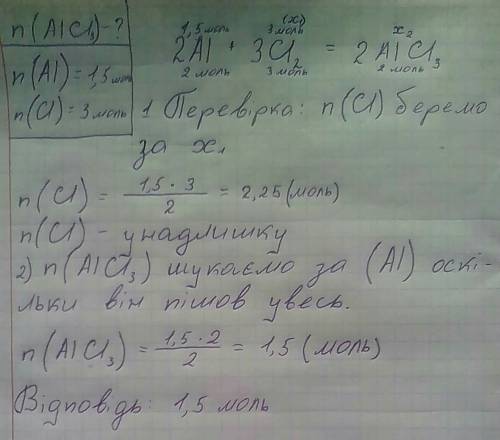 n(AlCl₃)-?
n(Al) = 1,5 моль
n(Cl) = 3 моль
1,5 моль 3 моль (x₁) x₂
2Al + 3Cl₂ = 2AlCl₃
2 моль 3 моль 2 моль
1 Перевірка: n(Cl) беремо
за x₁
n(Cl) = 1,5 · 3 / 2 = 2,25 (моль)
n(Cl) - у надлишку
2) n(AlCl₃) шукаємо за (Al) оскі-
льки він пішов увесь.
n(AlCl₃) = 1,5 · 2 / 2 = 1,5 (моль)
Відповідь: 1,5 моль